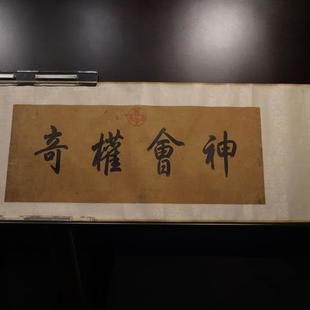 神會權奇